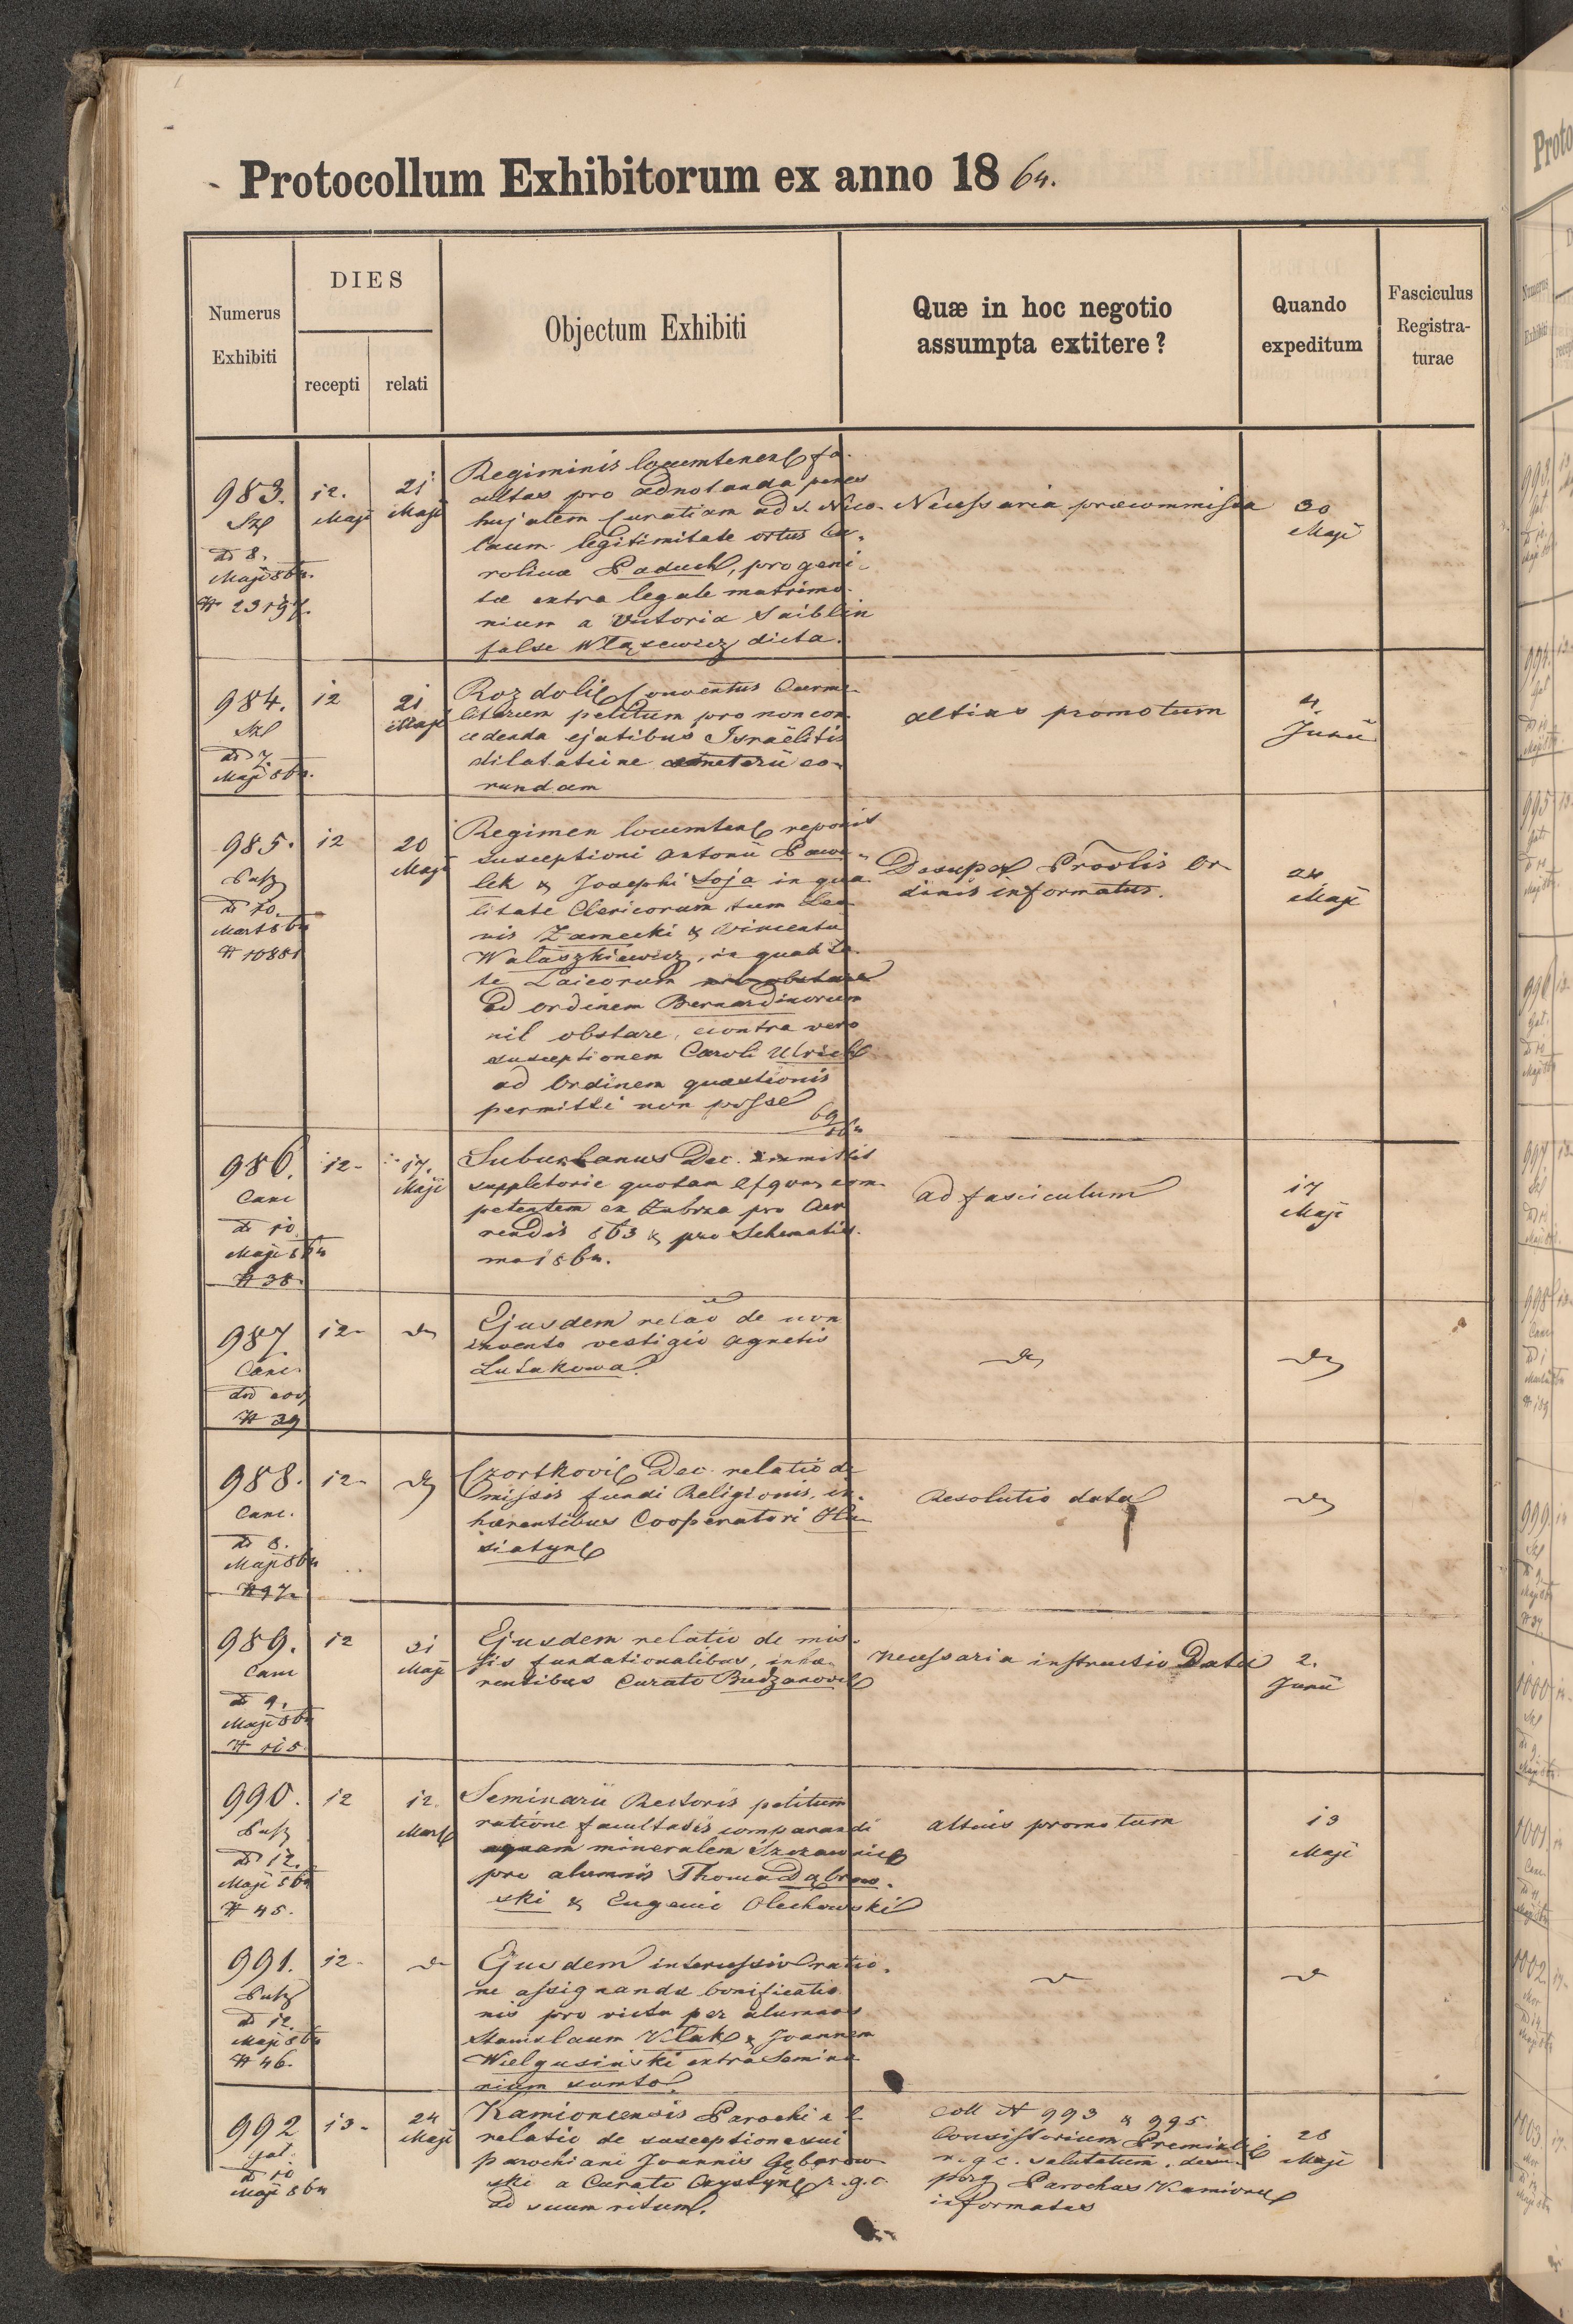 Protocollum Exhibitorum ex anno 1864.
Numerus Exhibiti
DIES
recepti
relati
Objectum Exhibiti
Quæ in hoc negotio assumpta extitere?
Quando expeditum
Fasciculus Registra-turae
983.
dd 8.
Maji 864.
№ 23197.
12. Maji
21 Maji
Regiminis
altas pro adnotanda penes
hujatem Curatiam ad S. Nico-
laum legitimitate ortus Ca-
rolinæ Paduch, progeni-
tæ extra legale matrimo-
nium a Victoria Saiblin
false Włązewicz dicta.
Necessaria præcommissa
30 Maji
984.
dd 7.
Maji 864.
12
21 Maji
Conventus Carme-
litarum petitum pro non con-
cedenda ejatibus Israëlitis
dilatatione cæmeterii eo-
rundam
altius promotum
4. Junii
985.
dd 10.
Mart 864
№ 10881
12
20 Maji
Regimen
susceptioni Antonii Pawe-
lek & Josephi Soja in qua-
litate Clericorum tum Leo-
nis Zamecki & Vincentii
Walaszkiewicz, in qualita-
te Laicorum
ad ordinem Bernardinorum
nil obstare, econtra vero
susceptionem Caroli Ulrich
ad Ordinem quæstionis
permitti non posse
Desuper Provlis Or-
dinis informatus.
24 Maji
986.
Canc
dd 10.
Maji 864
№ 38.
12-
17. Maji
Suburbanus Dec. immittit
suppletorie quotam com-
petentem ex Zubrza pro Cur-
rendis 863 & pro Schematis-
mo 1864.
ad fasciculum
17 Maji
987
Canc.
dd eod
№ 39
12-
do
Ejusdem relaō de non
invento vestigio Agnetis
Lutakowa.
do
do
988.
Canc.
dd 8.
Maji 864
№ 97.
12-
do
Czortkovi Dec. relatio de
missis fundi Religionis, in-
hærentibus Cooperatori Hu-
siatyn
Resolutio data
do
989.
Canc
dd 9.
Maji 864
№ 115.
12
31 Maji
Ejusdem relatio de mis-
sis fundationalibus, inhæ-
rentibus Curato Budzanov
necessaria instructio Data
2. Junii
990.
dd 12.
Maji 864
№ 45.
12
12.
Seminarii Rectoris petitum
ratione facultatis comparandi
aquam mineralem Szczawnic
pro alumnis Thoma Dąbrow-
ski & Eugenio Olechowski
altius promotum
13 Maji
991.
dd 12.
Maji 864
№ 46.
12-
do
Ejusdem intercessio ratio-
ne assignandæ bonificatio-
nis pro victu per alumnos
Stanislaum & Joannem
Wielgusinski extra Semina-
rium sumto.
do
do
992
dd 10
Maji 864
13-
24 Maji
Kamioncensis Parochi r. l.
relatio de susceptione sui
parochiani Joannis Gębarow-
ski a Curato r. g. c.
ad suum ritum.
Coll № 993 & 995
Consistorium Premisl
r. g. c.
Parochus Kamionc
informatus
28 Maji